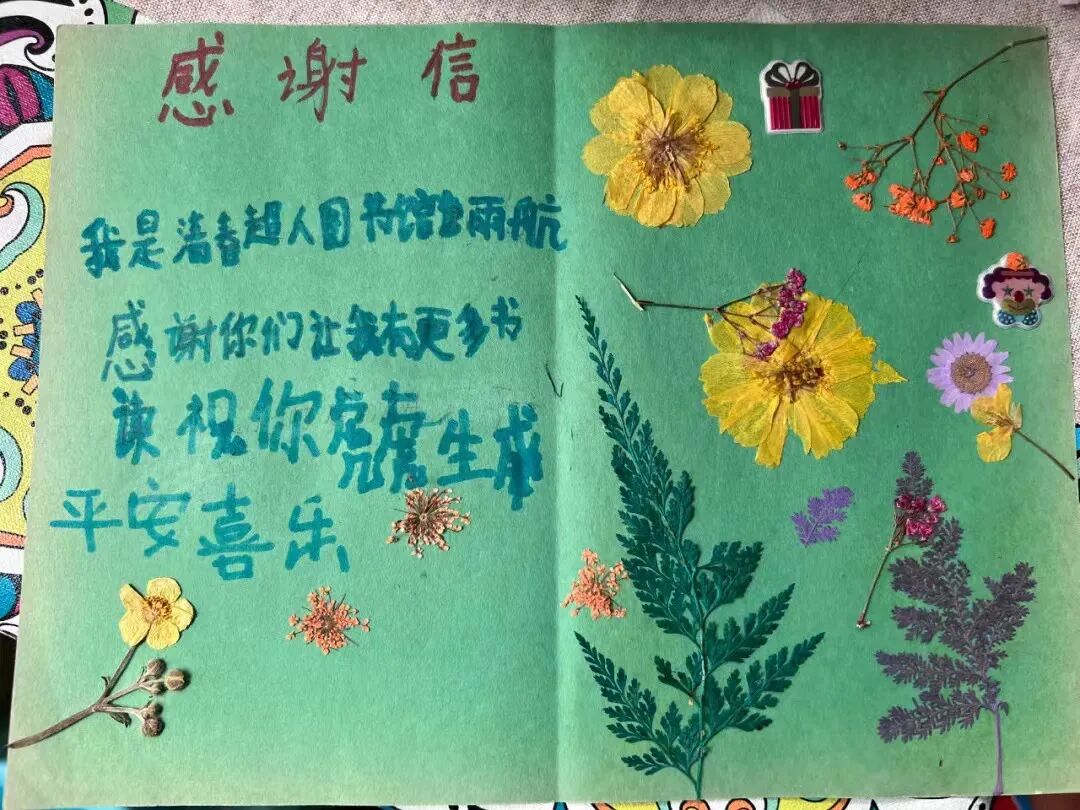 感谢信
我是青春超人图书馆雨航
感谢你们让我有更多书
读祝你虎虎生威
平安喜乐